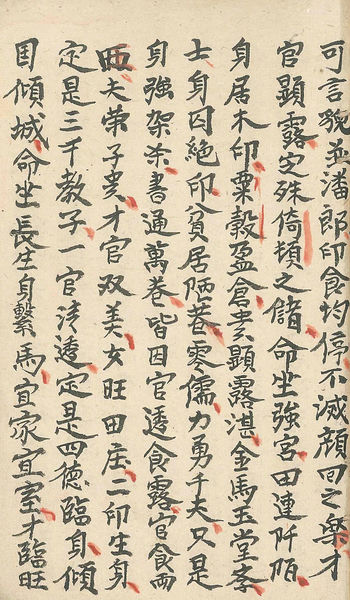 可言貌並潘郎印食均停不減顏回之樂才
官顯露定殊倚頓之儲命坐強宮田連阡陌
身居木印粟穀盈倉貴顯露湛金馬玉堂李
士身囚絶印貧居陋巷零儒力勇千夫只是
身強架殺書通萬卷皆因官透食露官食兩
旺夫荣子貴才官双美女旺田庄二印生身
定是三千教子一官清透定是四德臨身傾
国傾城命坐長生身繫馬宜家宜室才臨旺